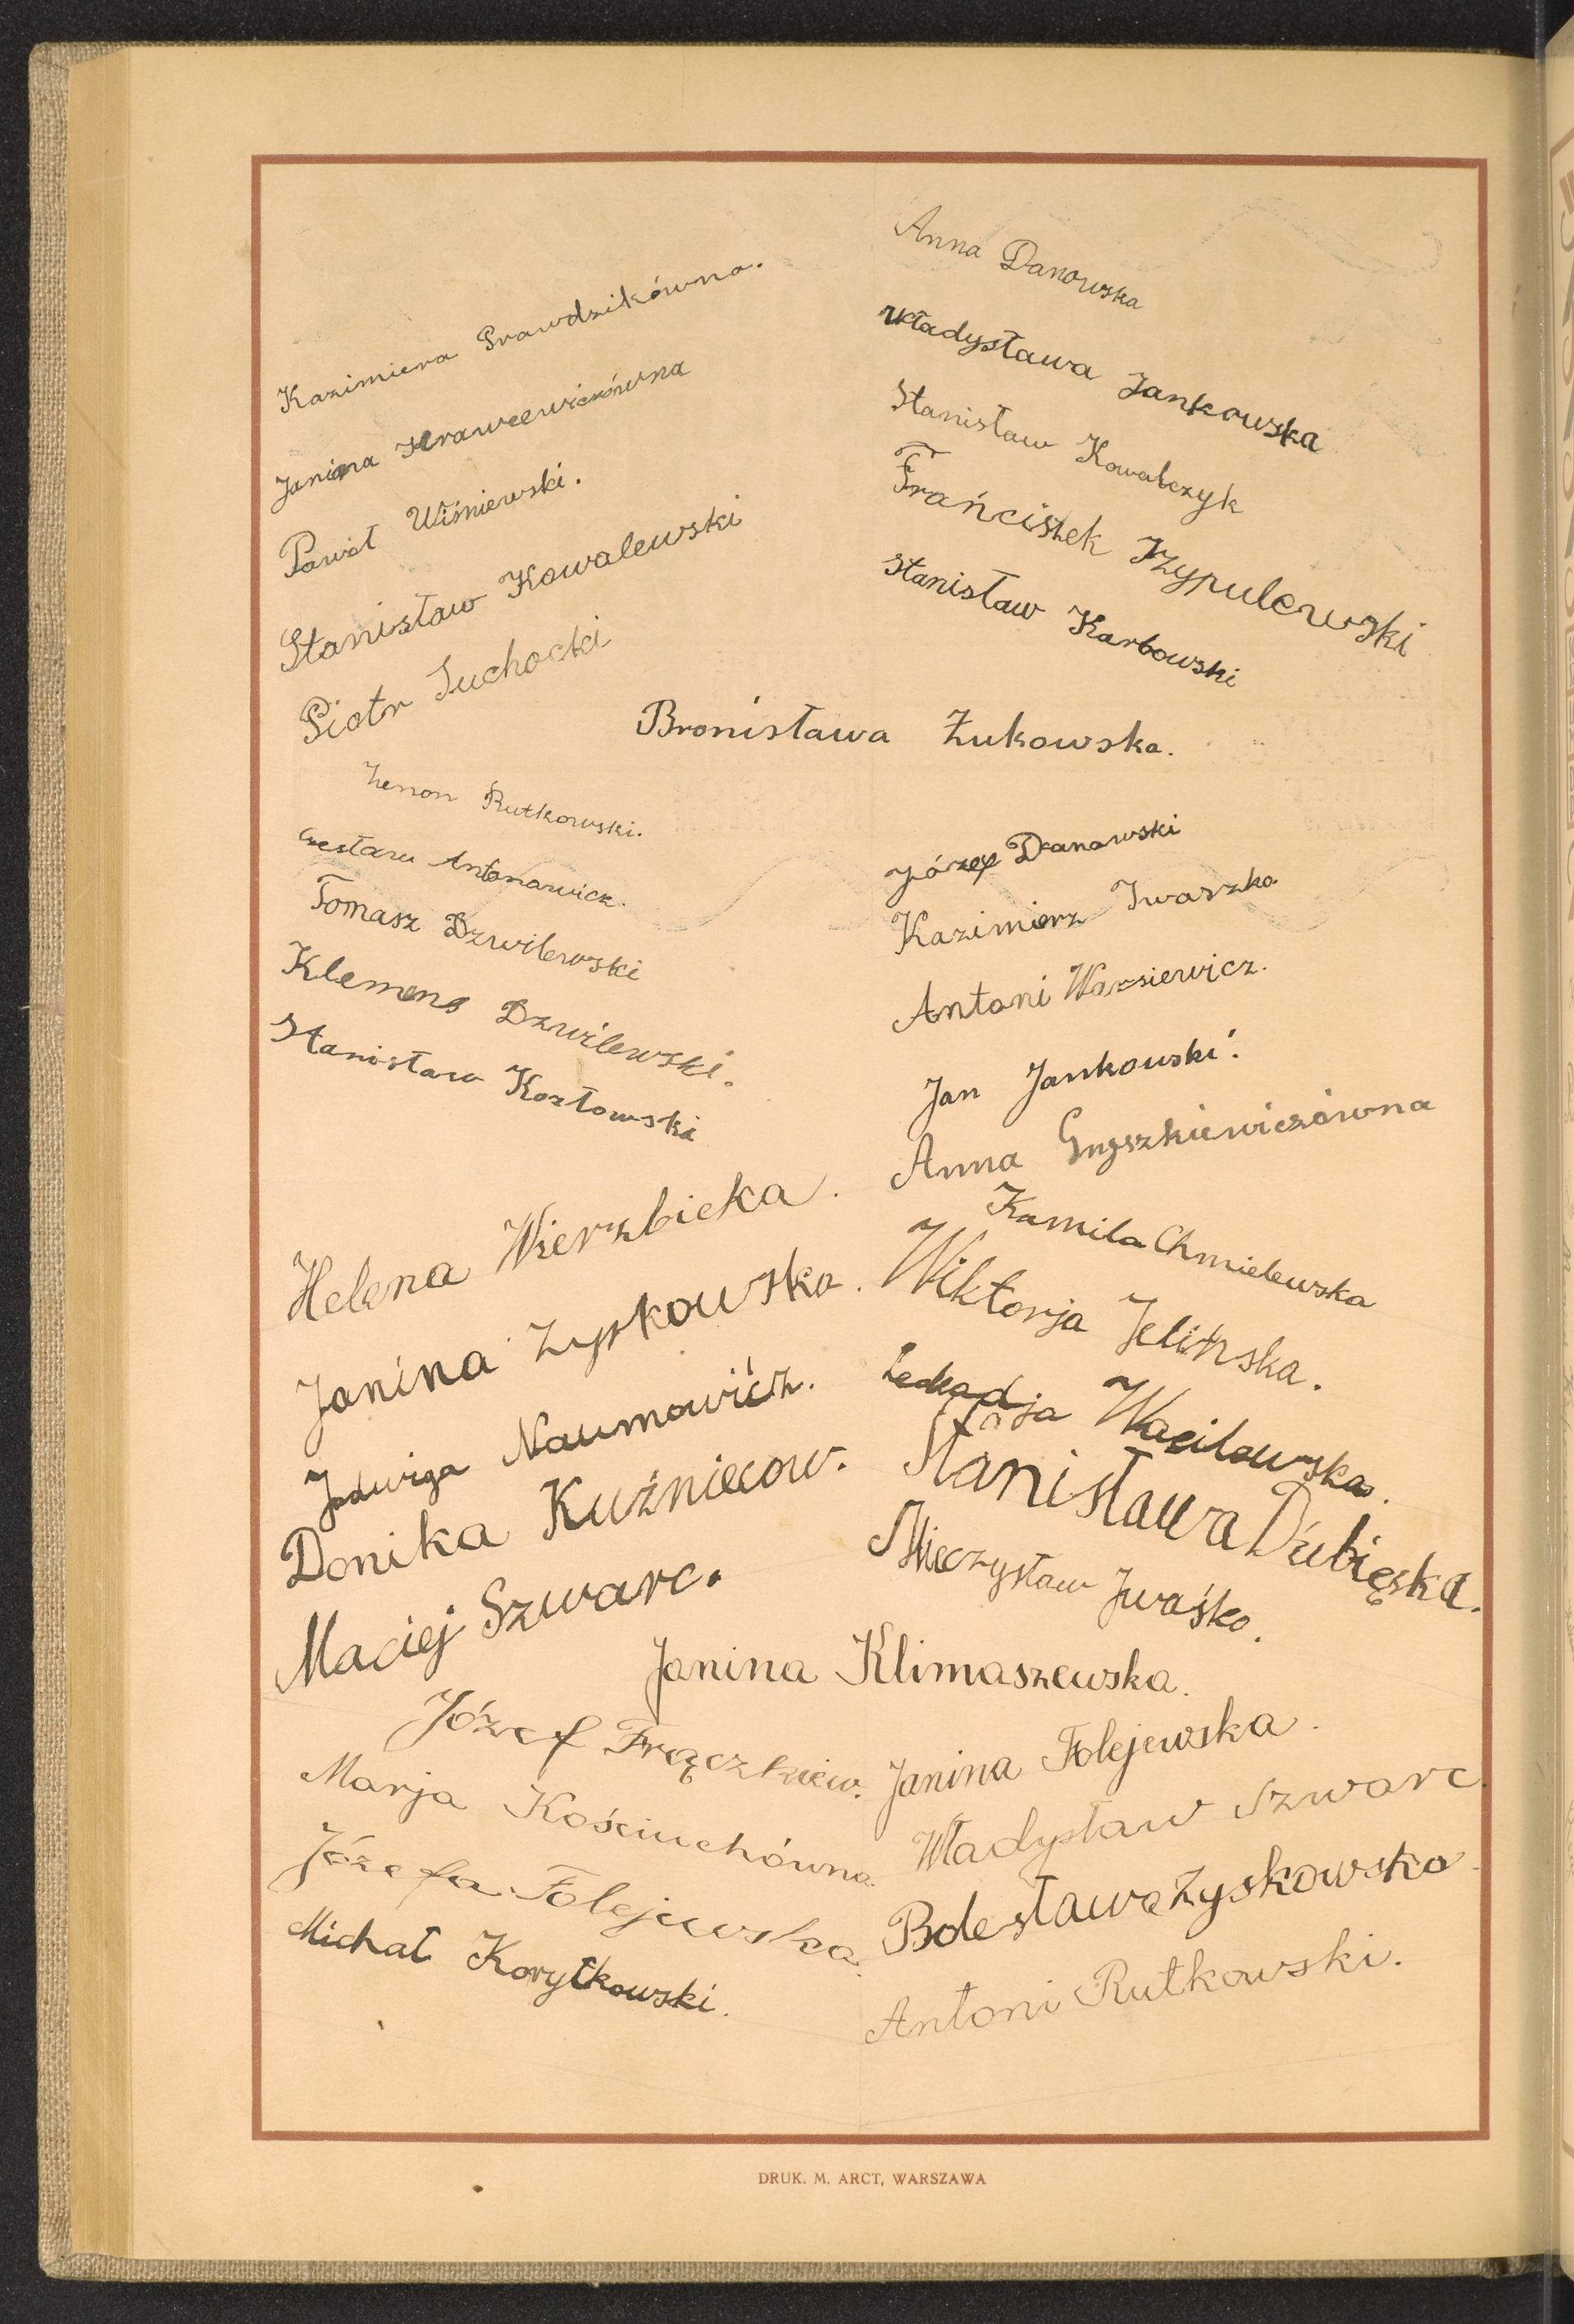 Kazimiera Prawdzikówna.
Janina Krawcewiczówna
Paweł Wiśniewski.
Stanisław Kowalewski
Piotr Suchocki
Anna Danowska
Władysława Jankowska
Stanisław Kowalczyk
Frańciszek Przypulewski
Stanisław Karbowski
Bronisława Żukowska.
Zenon Rutkowski.
Czesław Antonowicz.
Tomasz Dzwilewski
Klemens Dzwilewski.
Stanisław Kozłowski
Józef Danowski
Kazimierz Iwaszko
Antoni Warsiewicz.
Jan Jankowski.
Anna Gryszkiewiczówna
Helena Wierzbicka.
Janina Zyskowska.
Jadwiga Naumowicz.
Donika Kuźniecow.
Maciej Szwarc.
Kamila Chmielewska
Wiktorja Jelińska.
Leokadja Wasilewska.
Stanisława Dubięska.
Mieczysław Jwaśko.
Janina Klimaszewska.
Józef Frączkiew.
Marja Kościuchówna.
Józefa Folejewska.
Michał Korytkowski.
Janina Folejewska.
Władysław Szwarc.
Bolesława Zyskowska.
Antoni Rutkowski.
DRUK. M. ARCT, WARSZAWA